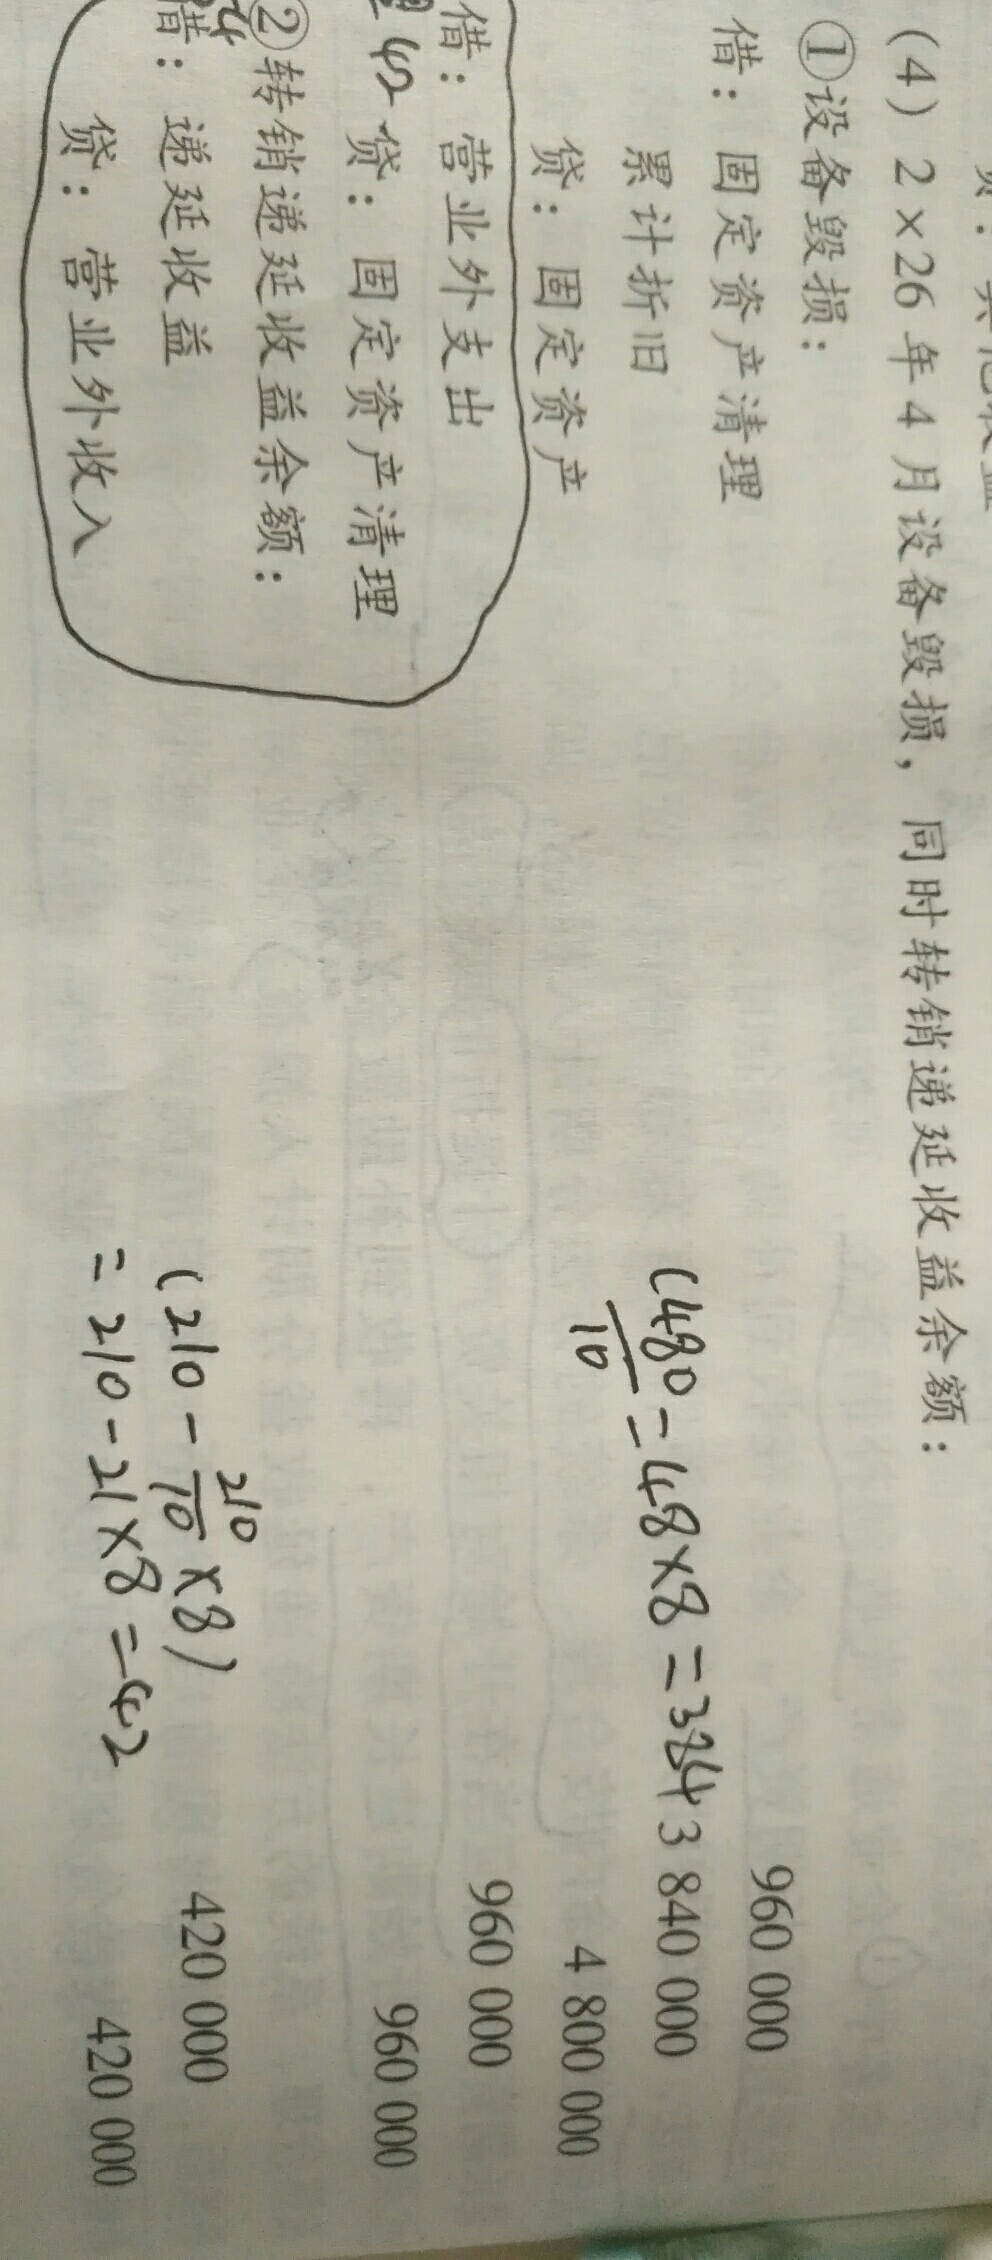 (4) 2×26年4月设备毁损，同时转销递延收益余额：
①设备毁损：
借：固定资产清理 960 000
累计折旧 (480/10=48×8=384 3 840 000
贷：固定资产 4 800 000
借：营业外支出 960 000
贷：固定资产清理 960 000
②转销递延收益余额：
借：递延收益 (210-210/10×8) 420 000
贷：营业外收入 =210-21×8=42 420 000